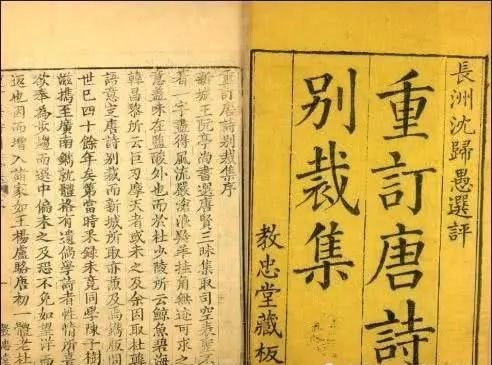 長洲沈歸愚選評
重訂唐詩
別裁集
教忠堂藏板
重訂唐詩別裁集序
新城王阮亭尚書選唐賢三昧集取司空表聖不
着一字盡得風流嚴滄浪羚羊挂角無迹可求之
意葢味在鹽酸外也而於杜少陵所云鯨魚碧海
韓昌黎所云巨刃摩天者或未之及余因取杜韓
語意定唐詩別裁而新城所取亦兼及焉鐫版問
世已四十餘年矣第當時采錄未竟同學陳子樹
滋攜至廣南鐫就體格有遺倘學詩者性情所喜
欲奉為步趨而選中偏未之及恐不免如望洋而
返也因而增入諸家如王楊盧駱唐初一體老杜